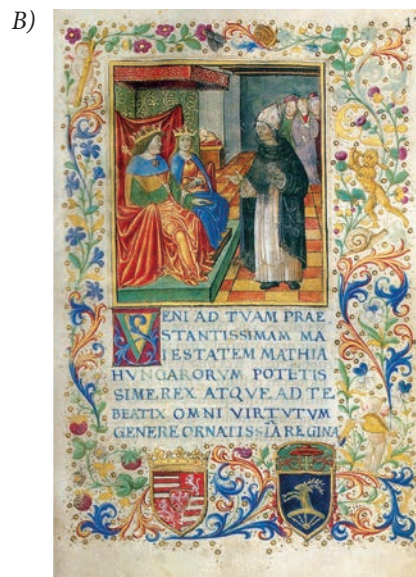 B)
1
VENI AD TVAM PRAE
STANTISSIMAM MA
IESTATEM MATHIA
HVNGARORVM POTETIS
SIME REX ATQVE AD TE
BEATIX OMNI VIRTVTVM
GENERE ORNATISSĪA REGINA